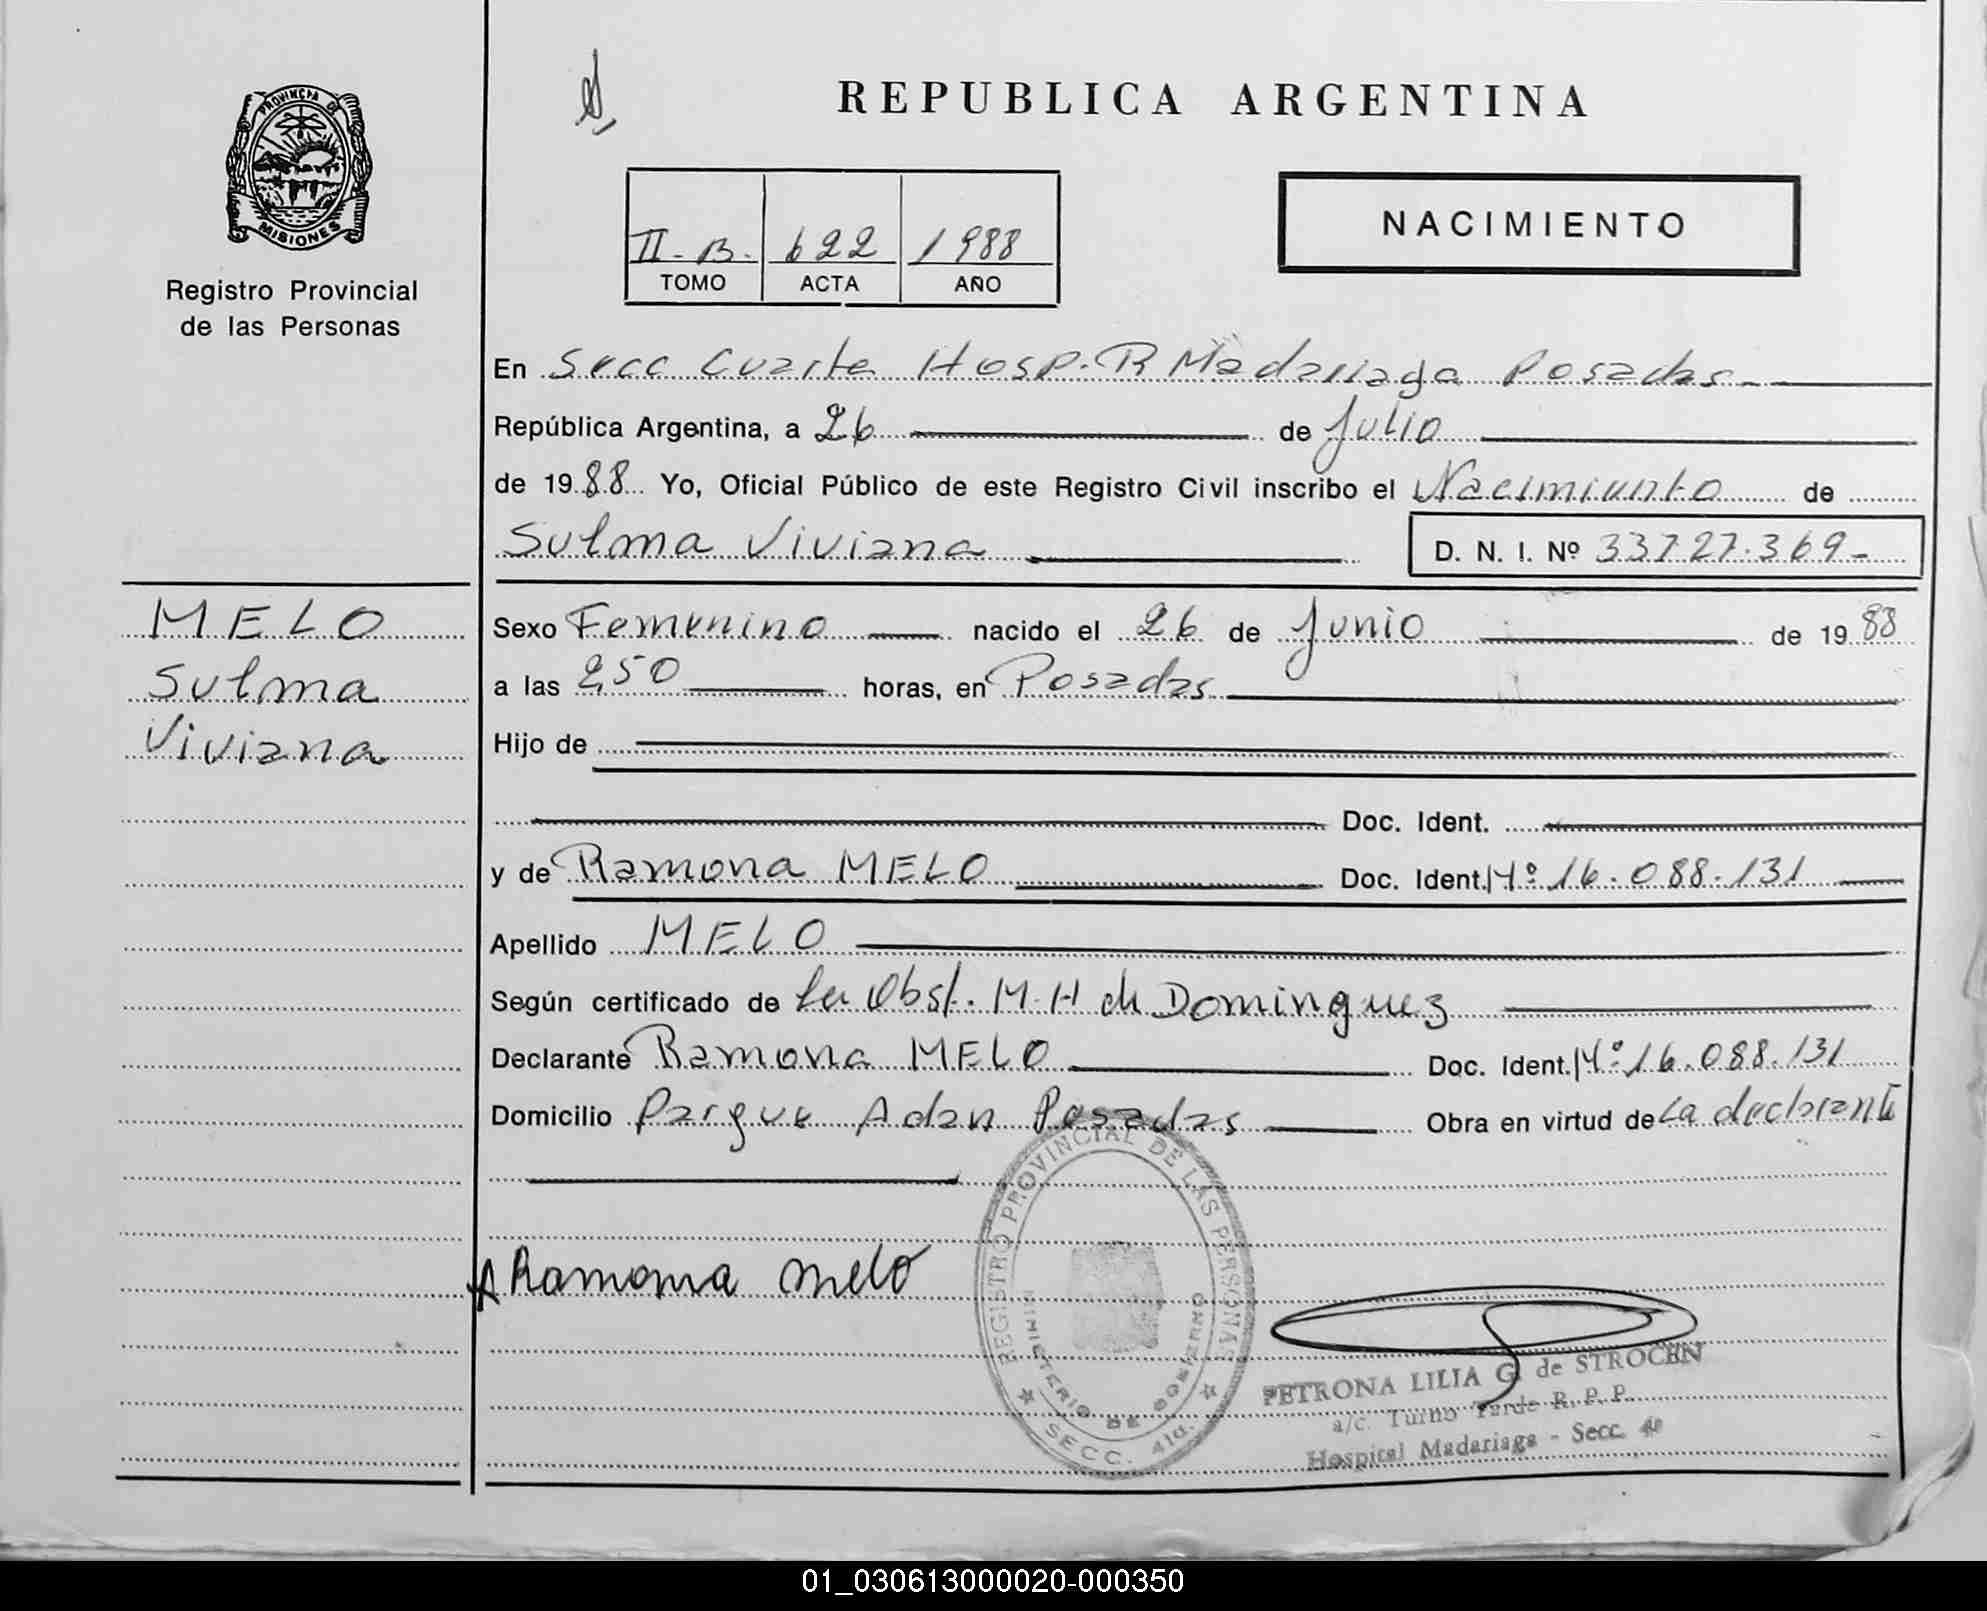 PROVINCIA DE
MISIONES
Registro Provincial
de las Personas
REPUBLICA ARGENTINA
II-B. 622 1988
TOMO ACTA AÑO
NACIMIENTO
En Secc Cuarta Hosp. R Madariaga Posadas
República Argentina, a 26 de Julio
de 1988 Yo, Oficial Público de este Registro Civil inscribo el Nacimiento de
Sulma Viviana D. N. I. Nº 33727.369-
MELO
Sulma
Viviana
Sexo Femenino nacido el 26 de Junio de 1988
a las 2,50 horas, en Posadas
Hijo de
Doc. Ident.
y de Ramona MELO Doc. Ident. Nº 16.088.131
Apellido MELO
Según certificado de La Obst. M. H de Dominguez
Declarante Ramona MELO Doc. Ident. Nº 16.088.131
Domicilio Parque Adan Posadas Obra en virtud de La declarante
Ramona Melo
REGISTRO PROVINCIAL DE LAS PERSONAS
MINISTERIO DE GOBIERNO
SECC. 4ta.
PETRONA LILIA G. de STROCEN
a/c. Turno Tarde R. P. P.
Hospital Madariaga - Secc. 4ª
01_030613000020-000350